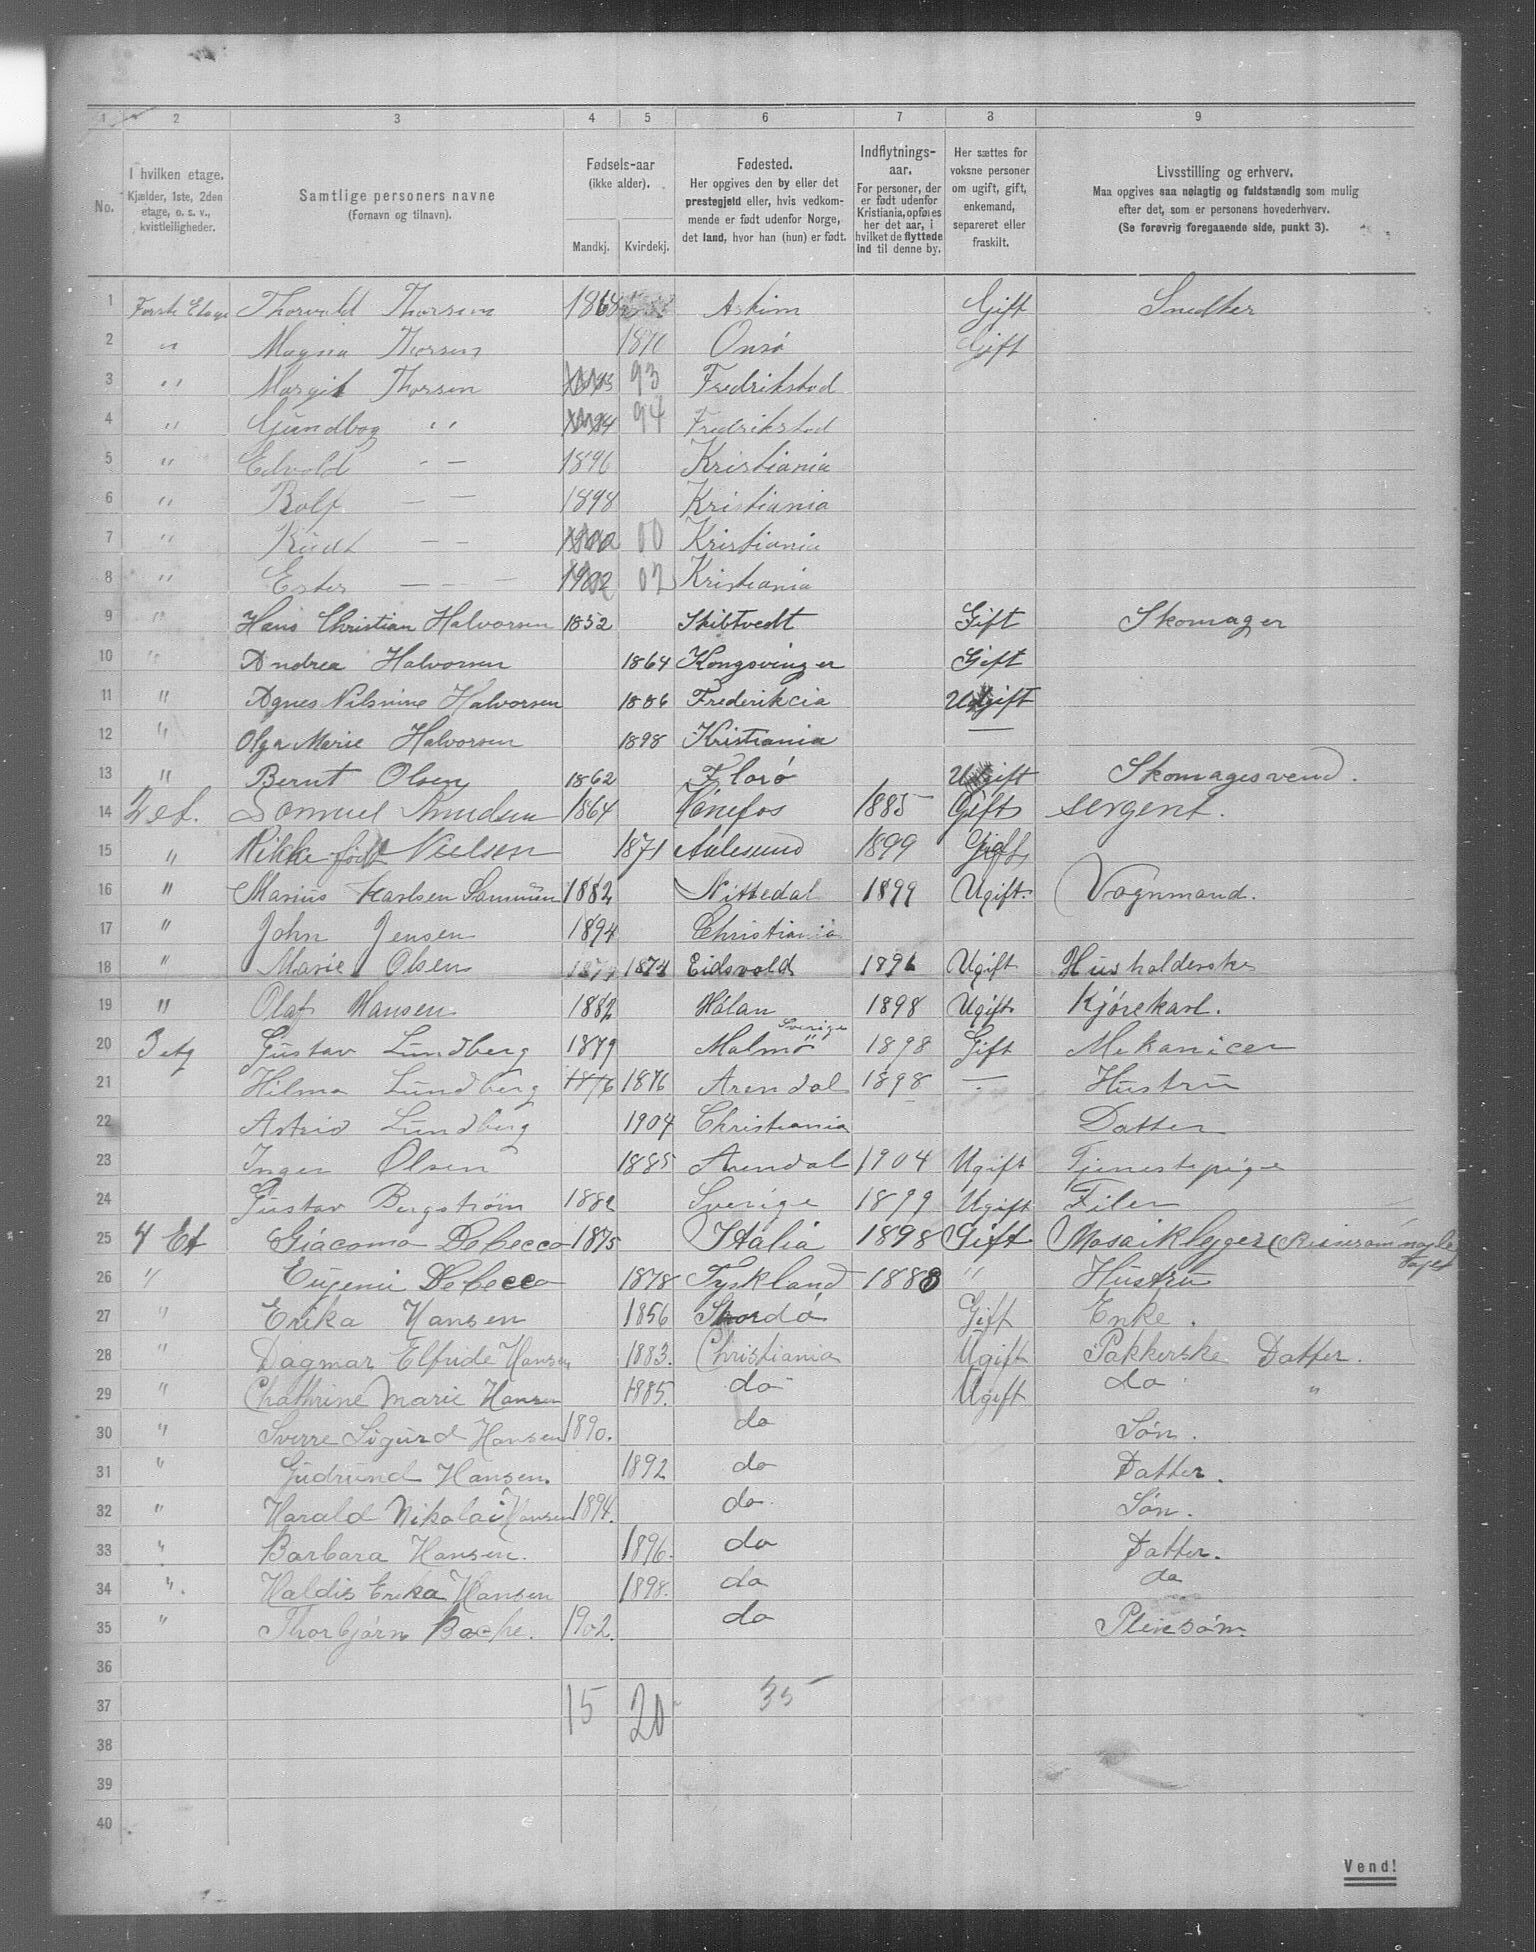 1 2 3 4 5 6 7 8 9
No. I hvilken etage. Kjælder, 1ste, 2den etage, o. s. v., kvistleiligheder. Samtlige personers navne (Fornavn og tilnavn). Fødsels-aar (ikke alder). Mandkj. Kvindekj. Fødested. Her opgives den by eller det prestegjeld eller, hvis vedkommende er født udenfor Norge, det land, hvor han (hun) er født. Indflytnings-aar. For personer, der er født udenfor Kristiania, opføres her det aar, i hvilket de flyttede ind til denne by. Her sættes for voksne personer om ugift, gift, enkemand, separeret eller fraskilt. Livsstilling og erhverv. Maa opgives saa nøiagtig og fuldstændig som mulig efter det, som er personens hovederhverv. (Se forøvrig foregaaende side, punkt 3).
1 Første Etage Thorvald Thorsen 1868 Askim Gift Snedker
2 " Magna Thorsen 1870 Onsø Gift
3 " Margit Thorsen 93 Fredrikstad
4 " Gundbog " 94 Fredrikstad
5 " Edvald - - 1896 Kristiania
6 " Rolf - - 1898 Kristiania
7 " - - 00 Kristiania
8 " Ester - - - 1902 02 Kristiania
9 " Hans Christian Halvorsen 1852 Skibtvedt Gift Skomager
10 " Andrea Halvorsen 1864 Kongsvinger Gift
11 " Agnes Nilsnine Halvorsen 1886 Frederikcia Ugift
12 " Olga Marie Halvorsen 1898 Kristiania —
13 " Bernt Olsen 1862 Florø Ugift Skomagesvend.
14 2 et. Samuel Knudsen 1864 Hønefos 1885 Gift sergent.
15 " Rikke født Nielsen 1871 Aalesund 1899 Gift
16 " Marius Karlsen 1882 Nittedal 1899 Ugift. Vognmand.
17 " John Jensen 1894 Christiania
18 " Marie Olsen 1874 1874 Eidsvold 1896 Ugift Husholderske
19 " Olaf Hansen 1882 Hølan 1898 Ugift Kjørekarl.
20 3 etg Gustav Lundberg 1879 Malmø Sverige 1898 Gift Mekanicer
21 Hilma Lundberg 1876 1876 Arendal 1898 — Hustru
22 Astrid Lundberg 1904 Christiania Datter
23 Inger Olsen 1885 Arendal 1904 Ugift Tjenestepige
24 Gustav Bergstrøm 1882 Sverige 1899 Ugift Filer
25 4 Et Giacomo DeCecco 1875 Italia 1898 Gift Mosaiklegger
26 " Eugeni DeCecco 1878 Tyskland 1888 " Hustru
27 " Erika Hansen 1856 Gift Enke.
28 " Dagmar Elfride Hansen 1883. Christiania Ugift Pakkerske Datter.
29 " Chathrine Marie Hansen 1885. do Ugift do "
30 " Sverre Sigurd Hansen 1890. do Søn.
31 " Gudrund Hansen. 1892 do Datter.
32 " Harald Nikolai Hansen 1894. do. Søn.
33 " Barbara Hansen. 1896. do Datter.
34 " Haldis Erika Hansen 1898. do do
35 " Thorbjørn 1902. do Pleiesøn.
36
37 15 20 35
38
39
40
Vend!